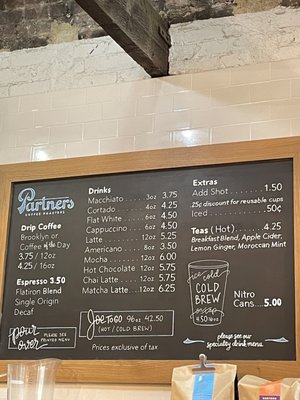 Partners
COFFEE ROASTERS
Drip Coffee
Brooklyn or
Coffee of the Day
3.75 / 12oz
4.25 / 16oz
Espresso 3.50
Flatiron Blend
Single Origin
Decaf
pour over
PLEASE SEE PRINTED MENU
Drinks
Macchiato 3oz 3.75
Cortado 4oz 4.25
Flat White 6oz 4.50
Cappuccino 6oz 4.50
Latte 12oz 5.25
Americano 8oz 3.50
Mocha 12oz 6.00
Hot Chocolate 12oz 5.75
Chai Latte 12oz 5.75
Matcha Latte 12oz 6.25
Joe To Go 96oz 42.50
(HOT / COLD BREW)
Prices exclusive of tax
Extras
Add Shot 1.50
25¢ discount for reusable cups
Iced 50¢
Teas (Hot) 4.25
Breakfast Blend, Apple Cider,
Lemon Ginger, Moroccan Mint
ice cold
COLD
BREW
4.50 16oz
Nitro
Cans 5.00
please see our
specialty drink menu